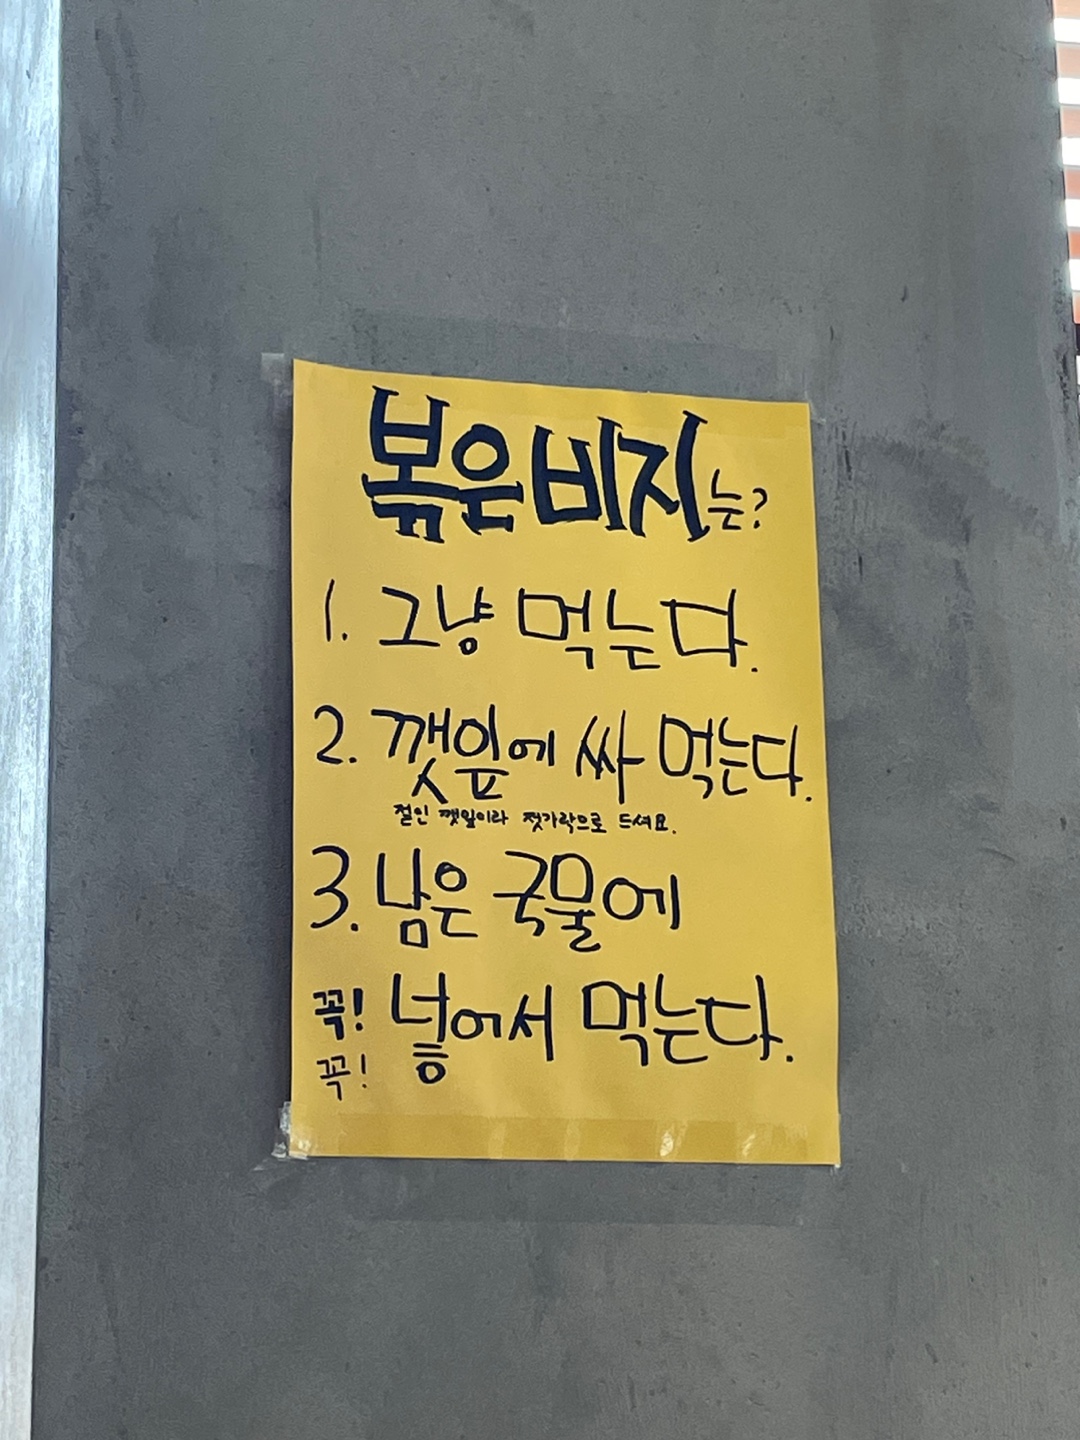 볶은비지는?
1. 그냥 먹는다.
2. 깻잎에 싸 먹는다.
절인 깻잎이라 젓가락으로 드셔요.
3. 남은 국물에
꼭! 넣어서 먹는다.
꼭!